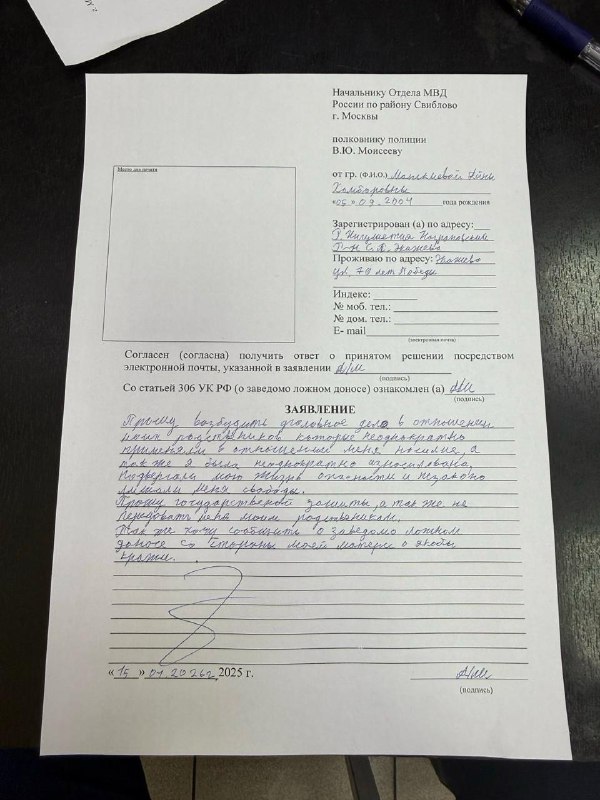 Начальнику Отдела МВД
России по району Свиблово
г. Москвы
полковнику полиции
В.Ю. Моисееву
Место для печати
от гр. (Ф.И.О.)
«05» 09.2004 года рождения
Зарегистрирован (а) по адресу:
Р. Ингушетия Назрановский
Р-Н С.П. Экажево
Проживаю по адресу: Экажево
ул. 70 лет Победы
Индекс:
№ моб. тел.:
№ дом. тел.:
E- mail
(электронная почта)
Согласен (согласна) получить ответ о принятом решении посредством
электронной почты, указанной в заявлении
(подпись)
Со статьей 306 УК РФ (о заведомо ложном доносе) ознакомлен (а)
(подпись)
ЗАЯВЛЕНИЕ
Прошу возбудить уголовное дело в отношении
моих родственников которые неоднократно
применяли в отношении меня насилие, а
так же я была неоднократно изнасилована,
Подвергали мою жизнь опасности и незаконно
лишали меня свободы.
Прошу государственой защиты, а так же не
моим родственикам.
Так же хочу сообщить о заведомо ложном
доносе со стороны моей матери о якобы
краже.
«15» 01.2026г. 2025 г.
(подпись)